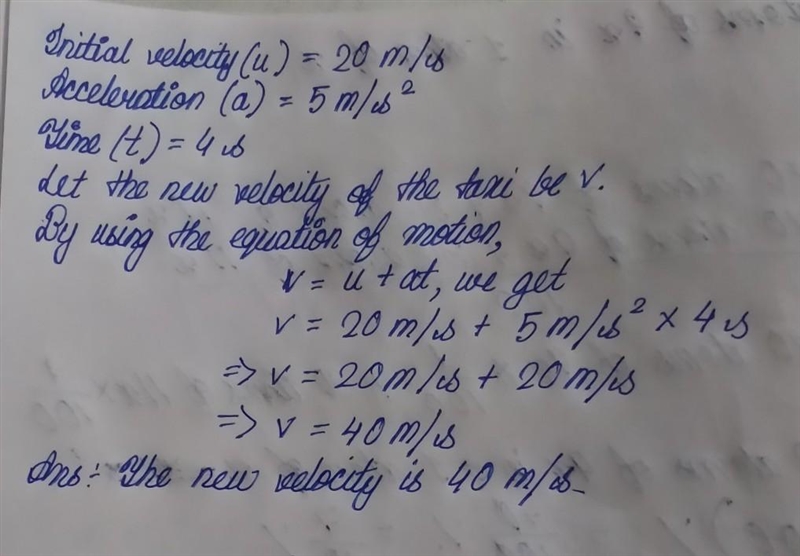 Initial velocity (u) = 20 m/s
Acceleration (a) = 5 m/s²
Time (t) = 4 s
Let the new velocity of the taxi be v.
By using the equation of motion,
v = u + at, we get
v = 20 m/s + 5 m/s² × 4 s
=> v = 20 m/s + 20 m/s
=> v = 40 m/s
Ans:- The new velocity is 40 m/s.